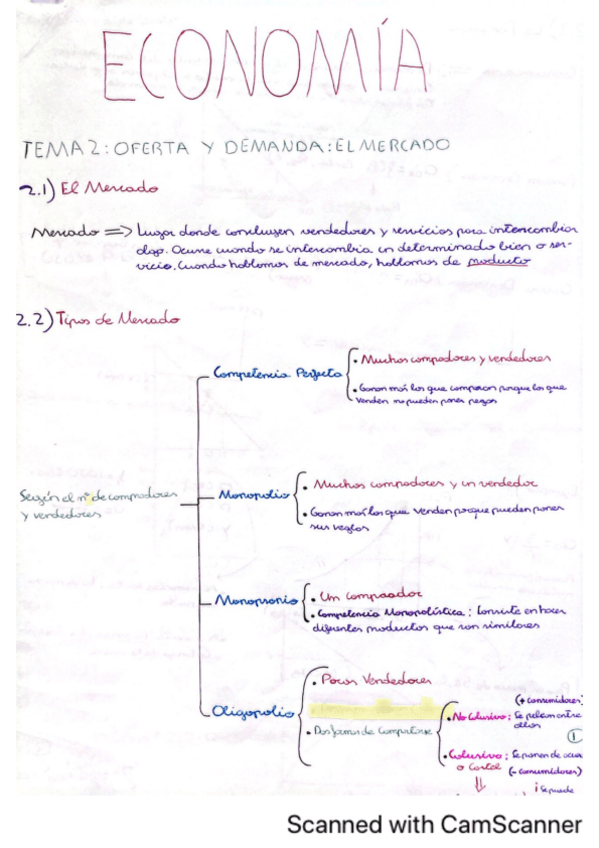 ECONOMÍA
TEMA 2: OFERTA Y DEMANDA: EL MERCADO
2.1) El Mercado
Mercado => Lugar donde confluyen vendedores y servicios para intercambiar
algo. Ocurre cuando se intercambia un determinado bien o ser-
vicio. Cuando hablamos de mercado, hablamos de producto
2.2) Tipos de Mercado
Según el nº de compradores
y vendedores
Competencia Perfecta
• Muchos compradores y vendedores
• Ganan más los que compran porque los que
venden no pueden poner
Monopolio
• Muchos compradores y un vendedor
• Ganan más los que venden porque pueden poner
sus reglas
Monopsonio
• Un comprador
• Competencia Monopolística: Consiste en hacer
diferentes productos que son similares
Oligopolio
• Pocos Vendedores
• Dos formas de Comportarse
(+ consumidores)
• No Colusivo: Se pelean entre
ellos
1
• Colusivo: Se ponen de acue
o Cartel (- consumidores)
⇓
¡Se puede
Scanned with CamScanner